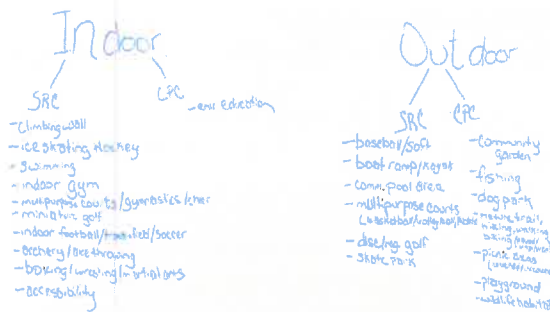 Indoor
SRC
- climbing wall
- ice skating/Hockey
- swimming
- indoor gym
- multipurpose courts/gymnastics/cheer
- miniature golf
- indoor football/ /soccer
- archery/axe throwing
- boxing/wresting/martial arts
- accessibility
CPC
- env education
Outdoor
SRC
- baseball/soft
- boat ramp/kayak
- comm. pool area
- multipurpose courts
(basketball/volleyball/
- disc/reg. golf
- skate park
CPC
- community
garden
- fishing
- dog park
- nature trail,
hiking, walking,
biking
- picnic areas
- playground
- wildlife habitat